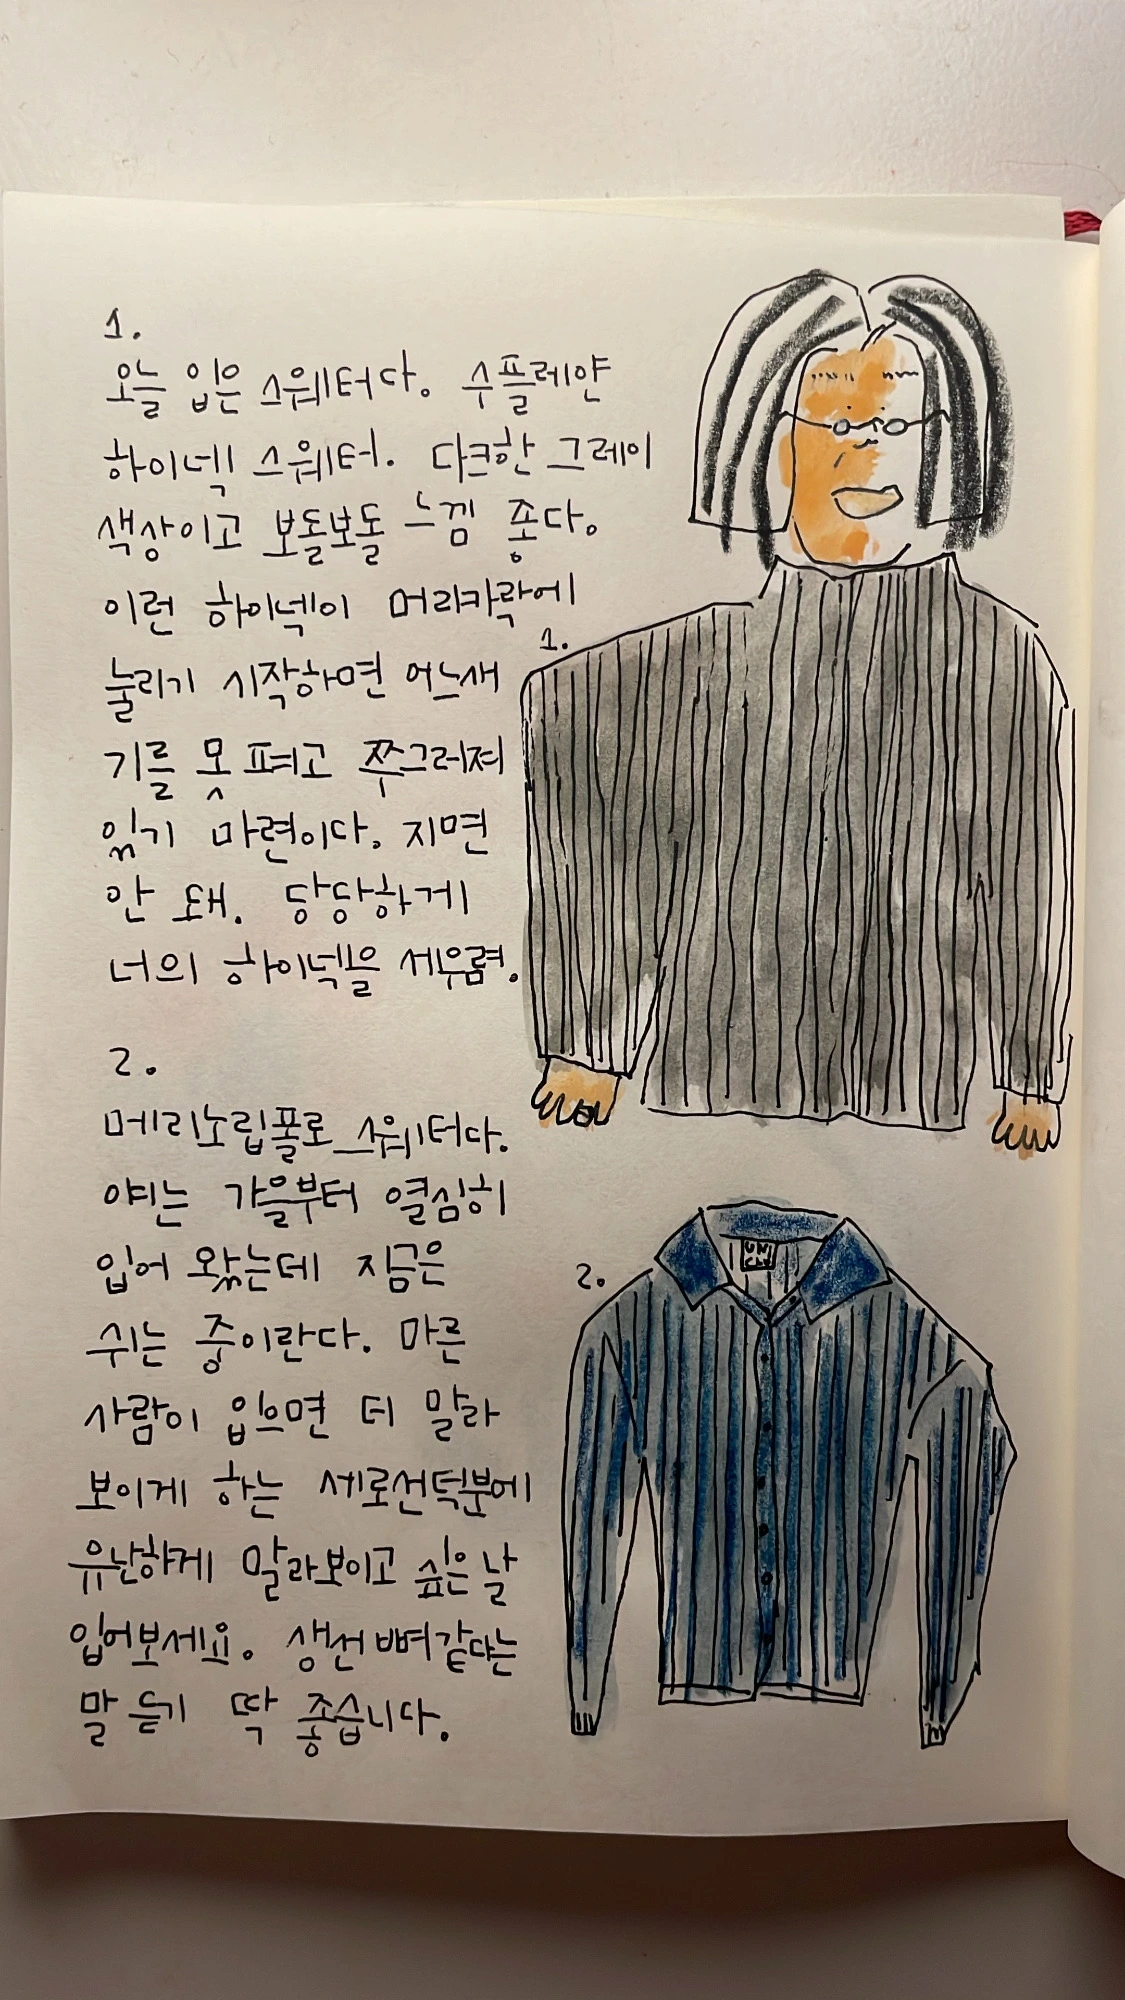 1.
오늘 입은 스웨터다. 수플레얀
하이넥 스웨터. 다크한 그레이
색상이고 보돌보돌 느낌 좋다.
이런 하이넥이 머리카락에
눌리기 시작하면 어느새
기를 못 펴고 쭈그러져
있기 마련이다. 지면
안 돼. 당당하게
너의 하이넥을 세우렴.
1.
2.
메리노립폴로 스웨터다.
얘는 가을부터 열심히
입어 왔는데 지금은
쉬는 중이란다. 마른
사람이 입으면 더 말라
보이게 하는 세로선덕분에
유난하게 말라보이고 싶은 날
입어보세요. 생선뼈같다는
말 듣기 딱 좋습니다.
2.
UN
CLE